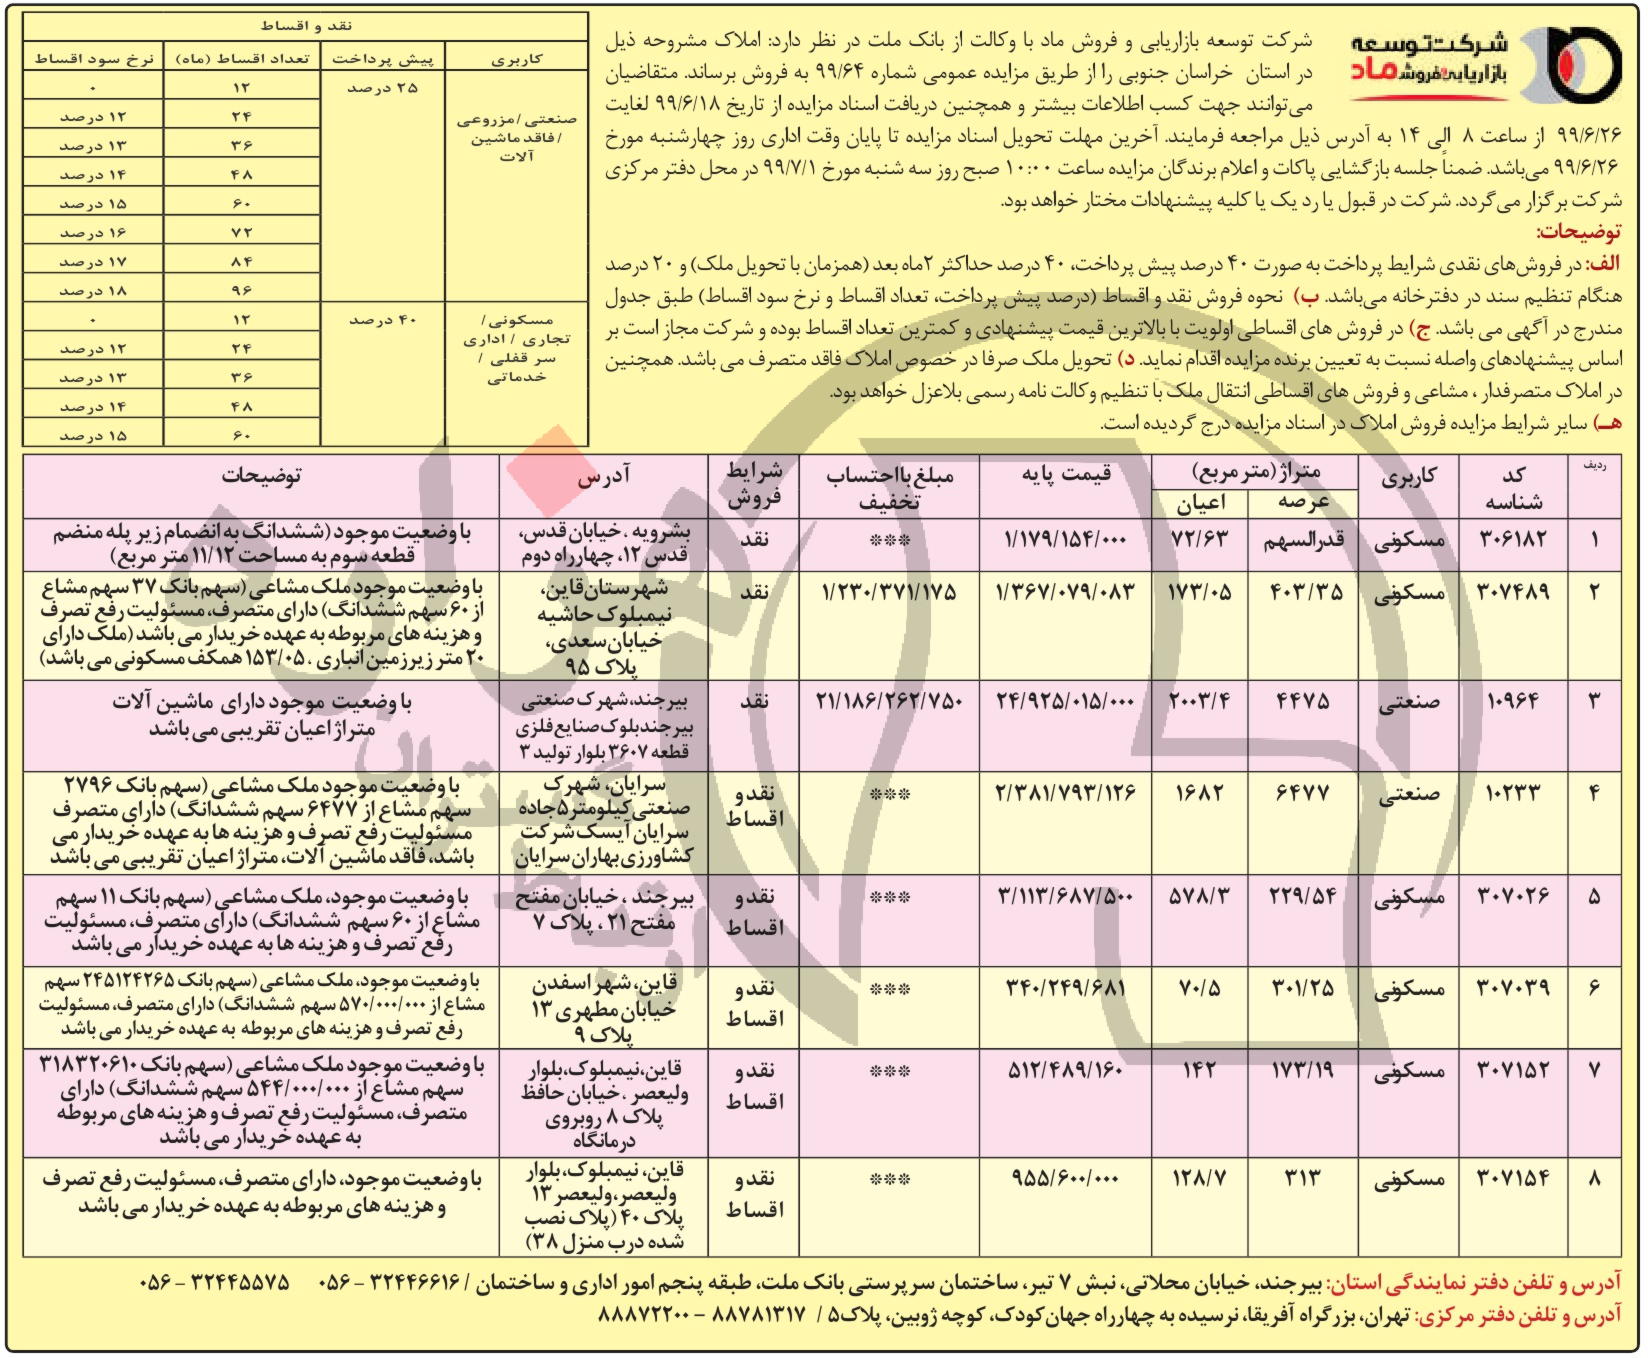 شرکت توسعه
بازاریابی و فروش ماد
شرکت توسعه بازاریابی و فروش ماد با وکالت از بانک ملت در نظر دارد: املاک مشروحه ذیل
در استان خراسان جنوبی را از طریق مزایده عمومی شماره ۹۹/۶۴ به فروش برساند. متقاضیان
می‌توانند جهت کسب اطلاعات بیشتر و همچنین دریافت اسناد مزایده از تاریخ ۹۹/۶/۱۸ لغایت
۹۹/۶/۲۶ از ساعت ۸ الی ۱۴ به آدرس ذیل مراجعه فرمایند. آخرین مهلت تحویل اسناد مزایده تا پایان وقت اداری روز چهارشنبه مورخ
۹۹/۶/۲۶ می‌باشد. ضمناً جلسه بازگشایی پاکات و اعلام برندگان مزایده ساعت ۱۰:۰۰ صبح روز سه شنبه مورخ ۹۹/۷/۱ در محل دفتر مرکزی
شرکت برگزار می‌گردد. شرکت در قبول یا رد یک یا کلیه پیشنهادات مختار خواهد بود.
توضیحات:
الف: در فروش‌های نقدی شرایط پرداخت به صورت ۴۰ درصد پیش پرداخت، ۴۰ درصد حداکثر ۲ماه بعد (همزمان با تحویل ملک) و ۲۰ درصد
هنگام تنظیم سند در دفترخانه می‌باشد. ب) نحوه فروش نقد و اقساط (درصد پیش پرداخت، تعداد اقساط و نرخ سود اقساط) طبق جدول
مندرج در آگهی می باشد. ج) در فروش های اقساطی اولویت با بالاترین قیمت پیشنهادی و کمترین تعداد اقساط بوده و شرکت مجاز است بر
اساس پیشنهادهای واصله نسبت به تعیین برنده مزایده اقدام نماید. د) تحویل ملک صرفا در خصوص املاک فاقد متصرف می باشد. همچنین
در املاک متصرفدار ، مشاعی و فروش های اقساطی انتقال ملک با تنظیم وکالت نامه رسمی بلاعزل خواهد بود.
هـ) سایر شرایط مزایده فروش املاک در اسناد مزایده درج گردیده است.
نقد و اقساط
کاربری پیش پرداخت تعداد اقساط (ماه) نرخ سود اقساط
صنعتی /مزروعی
/ فاقد ماشین
آلات
۲۵ درصد
۱۲ ۰
۲۴ ۱۲ درصد
۳۶ ۱۳ درصد
۴۸ ۱۴ درصد
۶۰ ۱۵ درصد
۷۲ ۱۶ درصد
۸۴ ۱۷ درصد
۹۶ ۱۸ درصد
مسکونی/
تجاری / اداری
سر قفلی /
خدماتی
۴۰ درصد
۱۲ ۰
۲۴ ۱۲ درصد
۳۶ ۱۳ درصد
۴۸ ۱۴ درصد
۶۰ ۱۵ درصد
ردیف کد شناسه کاربری متراژ (متر مربع) عرصه اعیان قیمت پایه مبلغ بااحتساب تخفیف شرایط فروش آدرس توضیحات
۱ ۳۰۶۱۸۲ مسکونی قدرالسهم ۷۲/۶۳ ۱/۱۷۹/۱۵۴/۰۰۰ *** نقد
بشرویه ، خیابان قدس،
قدس ۱۲، چهارراه دوم
با وضعیت موجود (ششدانگ به انضمام زیر پله منضم
قطعه سوم به مساحت ۱۱/۱۲ متر مربع)
۲ ۳۰۷۴۸۹ مسکونی ۴۰۳/۳۵ ۱۷۳/۰۵ ۱/۳۶۷/۰۷۹/۰۸۳ ۱/۲۳۰/۳۷۱/۱۷۵ نقد
شهرستان قاین،
نیمبلوک حاشیه
خیابان سعدی،
پلاک ۹۵
با وضعیت موجود ملک مشاعی (سهم بانک ۳۷ سهم مشاع
از ۶۰ سهم ششدانگ) دارای متصرف، مسئولیت رفع تصرف
و هزینه های مربوطه به عهده خریدار می باشد (ملک دارای
۲۰ متر زیرزمین انباری ، ۱۵۳/۰۵ همکف مسکونی می باشد)
۳ ۱۰۹۶۴ صنعتی ۴۴۷۵ ۲۰۰۳/۴ ۲۴/۹۲۵/۰۱۵/۰۰۰ ۲۱/۱۸۶/۲۶۲/۷۵۰ نقد
بیرجند، شهرک صنعتی
بیرجند بلوک صنایع فلزی
قطعه ۳۶۰۷ بلوار تولید ۳
با وضعیت موجود دارای ماشین آلات
متراژ اعیان تقریبی می باشد
۴ ۱۰۲۳۳ صنعتی ۶۴۷۷ ۱۶۸۲ ۲/۳۸۱/۷۹۳/۱۲۶ *** نقد و اقساط
سرایان، شهرک
صنعتی کیلومتر ۵ جاده
سرایان آیسک شرکت
کشاورزی بهاران سرایان
با وضعیت موجود ملک مشاعی (سهم بانک ۲۷۹۶
سهم مشاع از ۶۴۷۷ سهم ششدانگ) دارای متصرف
مسئولیت رفع تصرف و هزینه ها به عهده خریدار می
باشد، فاقد ماشین آلات، متراژ اعیان تقریبی می باشد
۵ ۳۰۷۰۲۶ مسکونی ۲۲۹/۵۴ ۵۷۸/۳ ۳/۱۱۳/۶۸۷/۵۰۰ *** نقد و اقساط
بیرجند ، خیابان مفتح
مفتح ۲۱ ، پلاک ۷
با وضعیت موجود، ملک مشاعی (سهم بانک ۱۱ سهم
مشاع از ۶۰ سهم ششدانگ) دارای متصرف، مسئولیت
رفع تصرف و هزینه ها به عهده خریدار می باشد
۶ ۳۰۷۰۳۹ مسکونی ۳۰۱/۲۵ ۷۰/۵ ۳۴۰/۲۴۹/۶۸۱ *** نقد و اقساط
قاین، شهر اسفدن
خیابان مطهری ۱۳
پلاک ۹
با وضعیت موجود، ملک مشاعی (سهم بانک ۲۴۵۱۲۴۲۶۵ سهم
مشاع از ۵۷۰/۰۰۰/۰۰۰ سهم ششدانگ) دارای متصرف، مسئولیت
رفع تصرف و هزینه های مربوطه به عهده خریدار می باشد
۷ ۳۰۷۱۵۲ مسکونی ۱۷۳/۱۹ ۱۴۲ ۵۱۲/۴۸۹/۱۶۰ *** نقد و اقساط
قاین، نیمبلوک، بلوار
ولیعصر ، خیابان حافظ
پلاک ۸ روبروی
درمانگاه
با وضعیت موجود ملک مشاعی (سهم بانک ۳۱۸۳۲۰۶۱۰
سهم مشاع از ۵۴۴/۰۰۰/۰۰۰ سهم ششدانگ) دارای
متصرف، مسئولیت رفع تصرف و هزینه های مربوطه
به عهده خریدار می باشد
۸ ۳۰۷۱۵۴ مسکونی ۳۱۳ ۱۲۸/۷ ۹۵۵/۶۰۰/۰۰۰ *** نقد و اقساط
قاین، نیمبلوک، بلوار
ولیعصر، ولیعصر ۱۳
پلاک ۴۰ (پلاک نصب
شده درب منزل ۳۸)
با وضعیت موجود، دارای متصرف، مسئولیت رفع تصرف
و هزینه های مربوطه به عهده خریدار می باشد
آدرس و تلفن دفتر نمایندگی استان: بیرجند، خیابان محلاتی، نبش ۷ تیر، ساختمان سرپرستی بانک ملت، طبقه پنجم امور اداری و ساختمان / ۳۲۴۴۶۶۱۶ - ۰۵۶ ۳۲۴۴۵۵۷۵ - ۰۵۶
آدرس و تلفن دفتر مرکزی: تهران، بزرگراه آفریقا، نرسیده به چهارراه جهان کودک، کوچه ژوبین، پلاک ۵ / ۸۸۷۸۱۳۱۷ - ۸۸۸۷۲۲۰۰